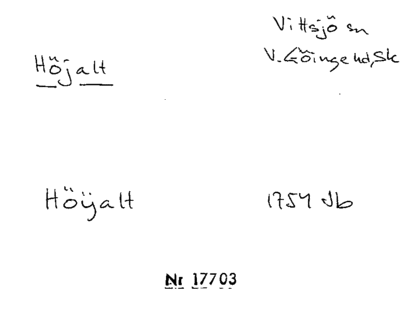 Vittsjö sn
Höjalt
V. Göinge hd, Sk
Höÿalt
1754 Jb
Nr 17703